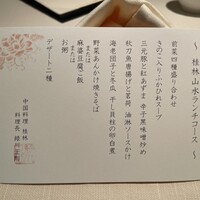 ～ 桂林山水ランチコース ～
前菜四種盛り合わせ
きのこ入りふかひれスープ
三元豚と紅あずま 辛子黒味噌炒め
秋刀魚唐揚げと茗荷 油淋ソースかけ
海老団子と冬瓜 干し貝柱の卵白煮
野菜あんかけ焼きそば
または
麻婆豆腐ご飯
または
お粥
デザート二種
中国料理 桂林
料理長